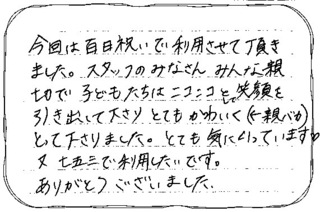 今回は百日祝いで利用させて頂き
ました。スタッフのみなさん みんな親
切で 子どもたちは ニコニコと笑顔を
引き出して下さり とてもかわいく(←親バカ)
とって下さりました。とても 気にいっています♡
又 七五三で利用したいです。
ありがとうございました。